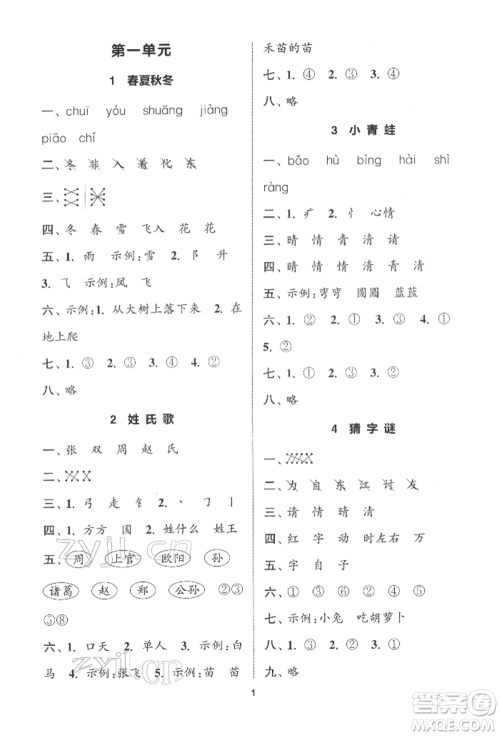 第一单元
1 春夏秋冬
一、chuī yóu shuāng jiàng
piāo chí
二、冬 非 入 着 化 东
三、
四、冬 春 雪 飞入 花 花
五、1. 雨 示例:雪 2. 阝 升
3. 飞 示例:凤 飞
六、示例:1. 从大树上落下来 2. 在
地上爬
七、1. ③ 2. ② 3. ④ 4. ②
八、略
2 姓氏歌
一、张 双 周 赵 氏
二、
三、1. 弓 走 色 2. 、 丿 亅
四、1. 方方 国 2. 姓什么 姓王
五、周 上官 欧阳 孙
诸葛 赵 郑 公孙 ②③
⑤⑧
六、1. 口天 2. 单人 3. 示例:白
马 4. 示例:张飞 5. 示例:苗 苗
禾苗的苗
七、1. ④ 2. ② 3. ① 4. ③
八、略
3 小青蛙
一、bǎo hù bìng hài shì
ràng
二、1. 疒 2. 忄 心情
三、晴 情 青 清 请
四、睛 情 清 请 晴 清
五、示例:弯弯 圆圆 蓝蓝
六、1. ③ 2. ② 3. ① 4. ①
5. ②
七、③ ① ② ④
八、略
4 猜字谜
一、
二、为 自 东 江 讨 动
三、情 请 晴 清
四、红 字 动 时
五、字 自 子
六、1. ② 2. ①
七、示例:小兔 吃胡萝卜
八、1. ③ 2. ② ③ ①
九、略
1
zyjl.cn
zyjl.cn